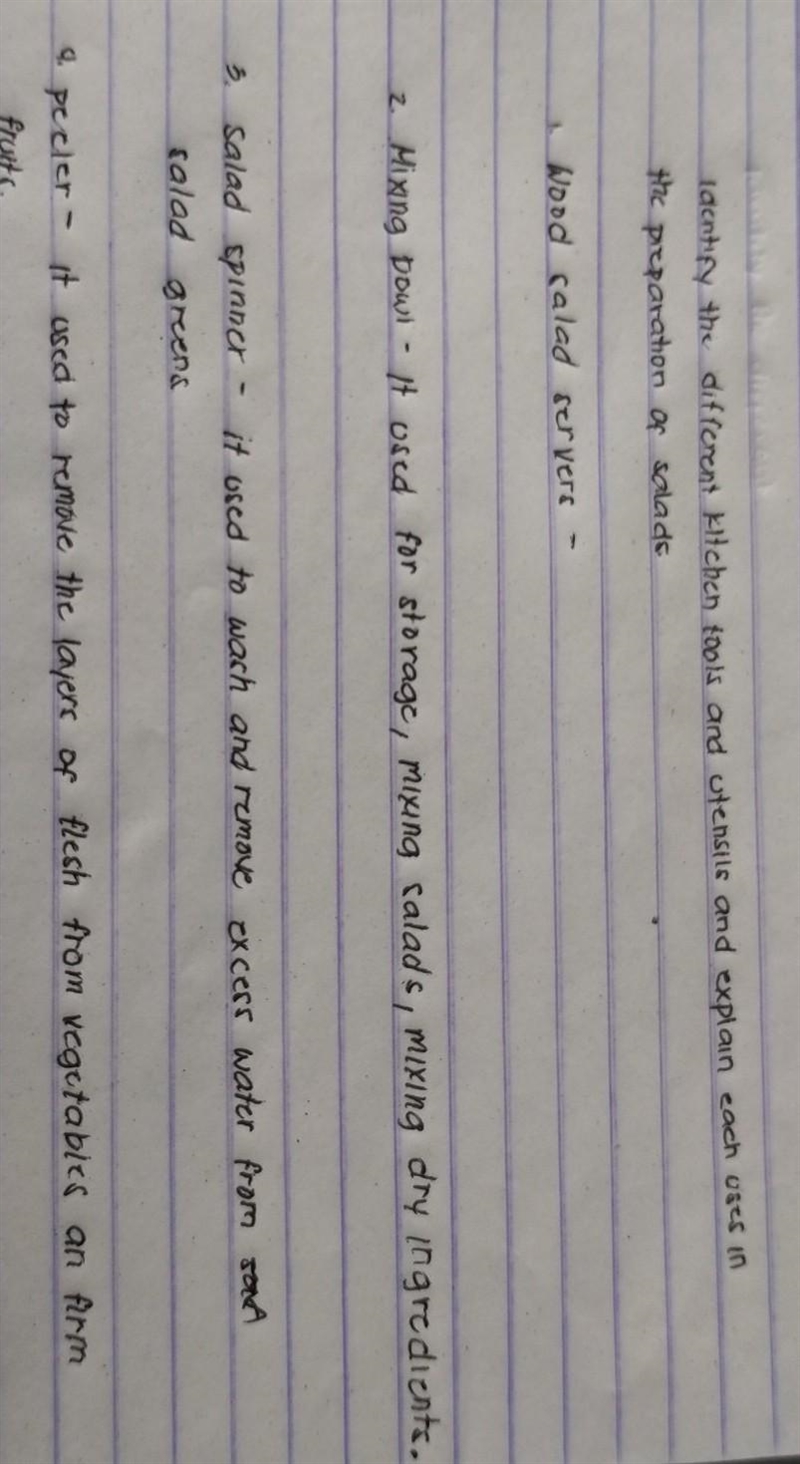 Identify the different kitchen tools and utensils and explain each uses in
the preparation of salads
1. Wood salad servers -
2. Mixing bowl - It used for storage, mixing salads, mixing dry ingredients.
3. Salad spinner - it used to wash and remove excess water from
salad greens
4. peeler - it used to remove the layers of flesh from vegetables an firm
fruits.